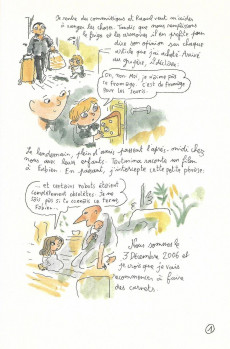 Je rentre des commissions et Raoul veut m'aider
à ranger les choses. Tandis que nous remplissons
le frigo et les armoires il en profite pour
dire son opinion sur chaque
article que j'ai acheté. Arrivé
au gruyère, il déclare:
Oh, non. Moi j'aime pas
le fromage. C'est du fromage
pour les souris.
Le lendemain, plein d'amis passent l'après-midi chez
nous avec leurs enfants. Tontanima raconte un film
à Fabien. En passant, j'intercepte cette petite phrase:
... et certains robots étaient
complètement obsolètes. Je ne
sais pas si tu connais ce terme
Fabien...
Nous sommes le
3 Décembre 2006 et
je crois que je vais
recommencer à faire
des carnets.
1